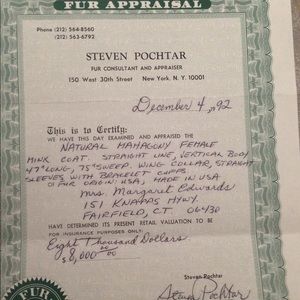 FUR APPRAISAL
Phone (212) 564-8560
(212) 563-6792
STEVEN POCHTAR
FUR CONSULTANT AND APPRAISER
150 West 30th Street New York, N. Y. 10001
December 4, 92
This is to Certify:
WE HAVE THIS DAY EXAMINED AND APPRAISED THE
NATURAL MAHAGONY FEMALE
MINK COAT. STRAIGHT LINE, VERTICAL BODY
47" LONG, 75" SWEEP. WING COLLAR, STRAIGHT
SLEEVES WITH BRACELET CUFFS
OF FUR ORIGIN USA, MADE IN USA
Mrs. Margaret Edwards
151 KNAPPS HYWY.
FAIRFIELD, CT 06430
HAVE DETERMINED ITS PRESENT RETAIL VALUATION TO BE
FOR INSURANCE PURPOSES ONLY
Eight Thousand Dollars
$8,000.00
Steven Pochtar
Steven Pochtar
FUR